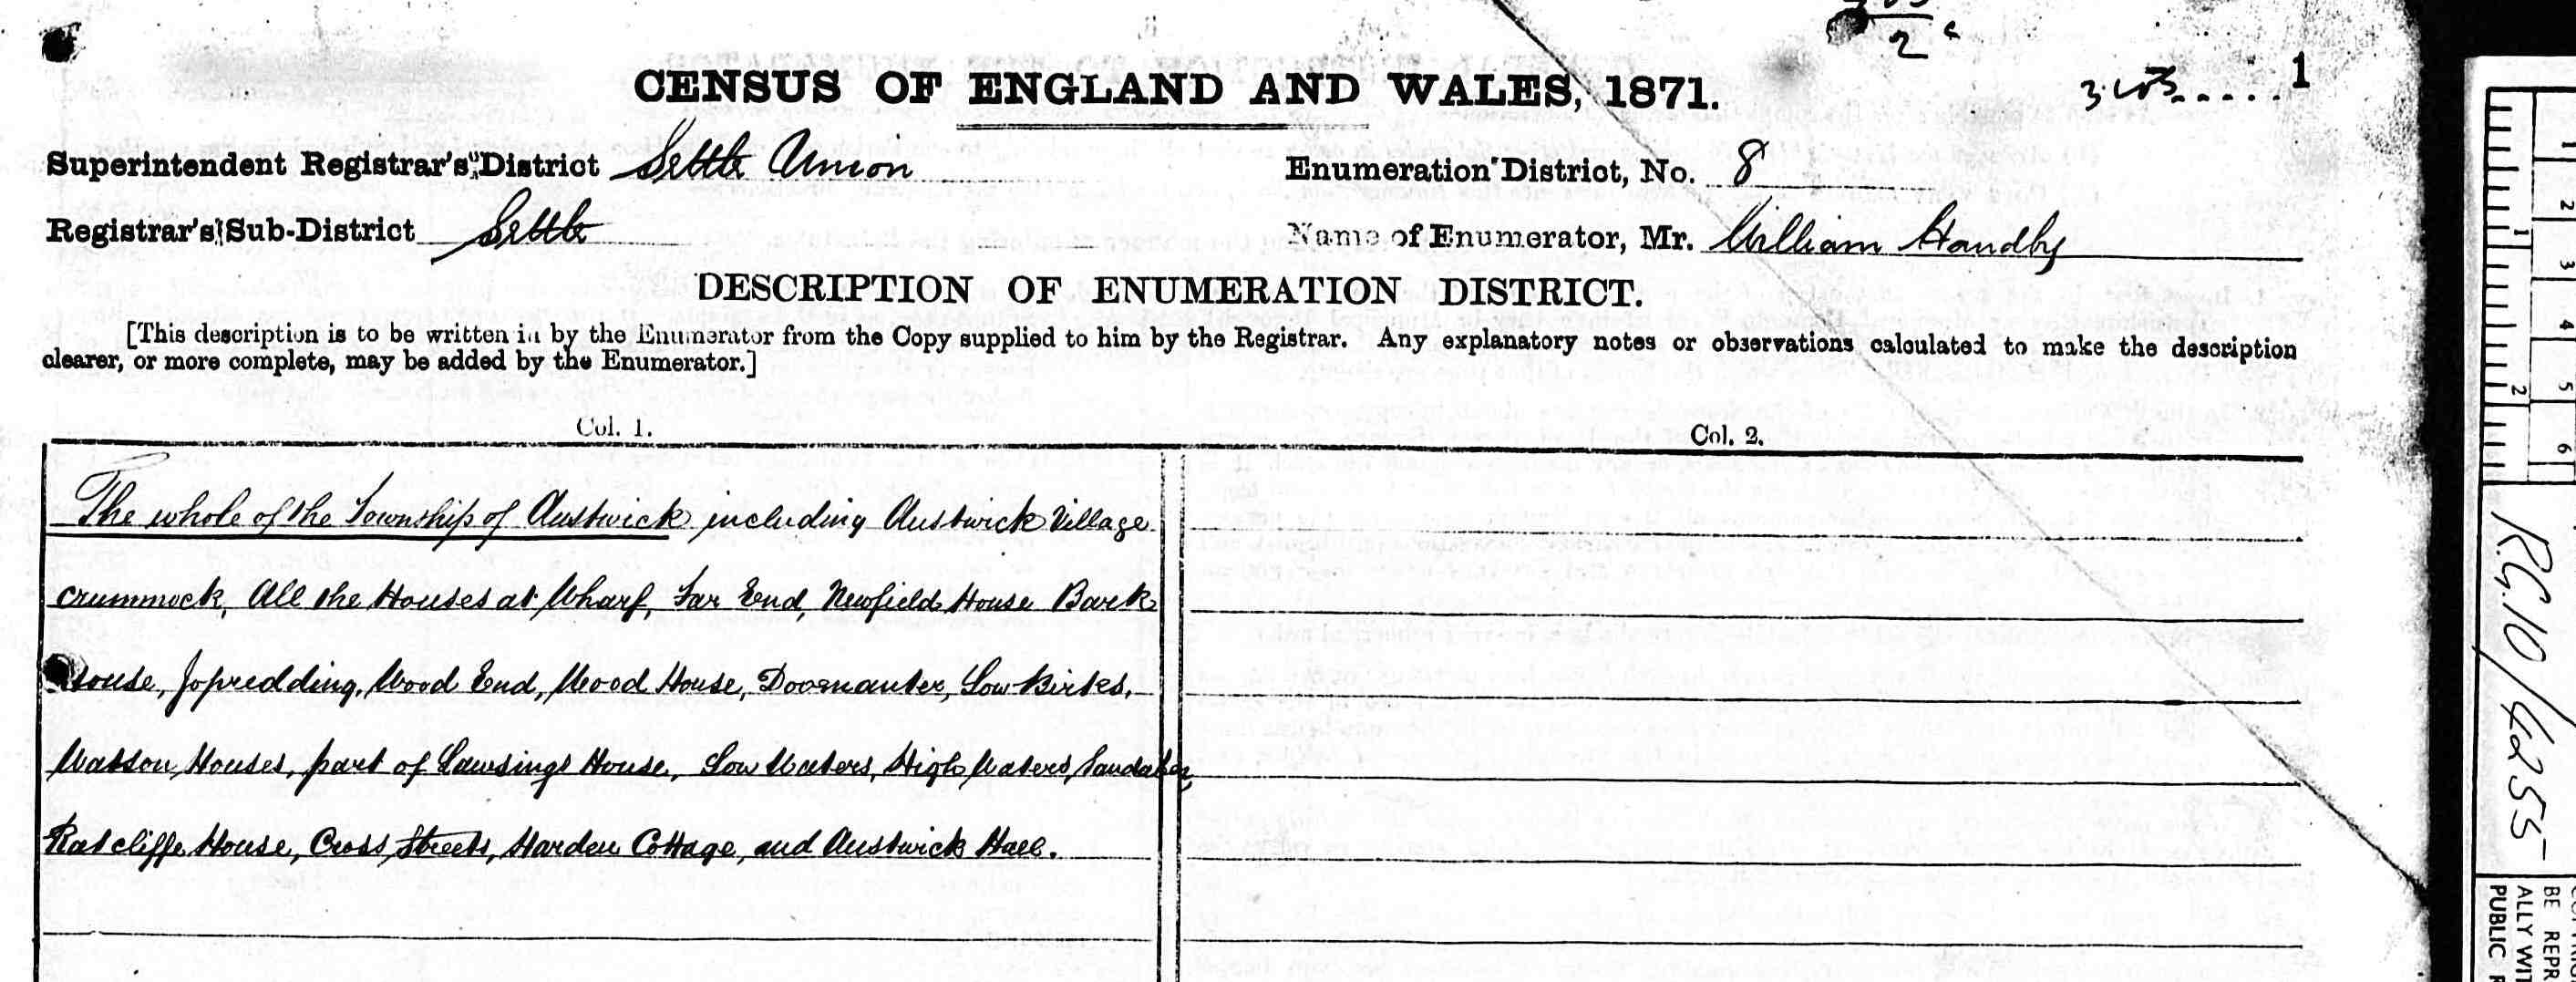 CENSUS OF ENGLAND AND WALES, 1871.
1
Superintendent Registrar's District Settle Union
Enumeration District, No. 8
Registrar's Sub-District Settle
Name of Enumerator, Mr. William Handby
DESCRIPTION OF ENUMERATION DISTRICT.
[This description is to be written in by the Enumerator from the Copy supplied to him by the Registrar. Any explanatory notes or observations calculated to make the description
clearer, or more complete, may be added by the Enumerator.]
Col. 1.
Col. 2.
The whole of the Township of Austwick including Austwick Village
Crummock, All the Houses at Wharf, Far End, Newfield House Bark
House, Jopredding, Wood End, Wood House, Low Birks,
Watson Houses, part of Lawsings House, Low Waters, High Waters,
Ratcliffe House, Cross Streets, Harden Cottage, and Austwick Hall.
R.G. 10/4255
1 2 3 4 5 6
1 2
BE REPR
ALLY WIT
PUBLIC